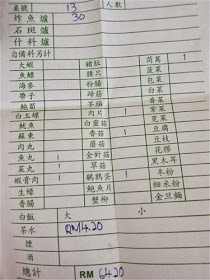 桌號 13 人數
炸魚爐 30
石斑爐
什料爐
自備料另計
大蝦 豬腰 茼蒿
魚鰾 腰只 菠菜
海參 粉腸 生菜
帶子 蹄筋 莧菜
鮑筍 芋頭 白菜
白玉螺 肉片 香菜
魷魚 白靈菇 紫菜
蘇東 香菇 豆腐
肉丸 蘑菇 豆枝
魚丸 金針菇 花膠
菜丸 草菇 黑木耳
蝦膏肉 鵪鶉蛋 冬粉
生蠔 鮑魚片 細米粉
香腸 蟹柳 金旦麵
白飯 大 小
茶水 RM14.20
煙
酒
總計 RM 64.20